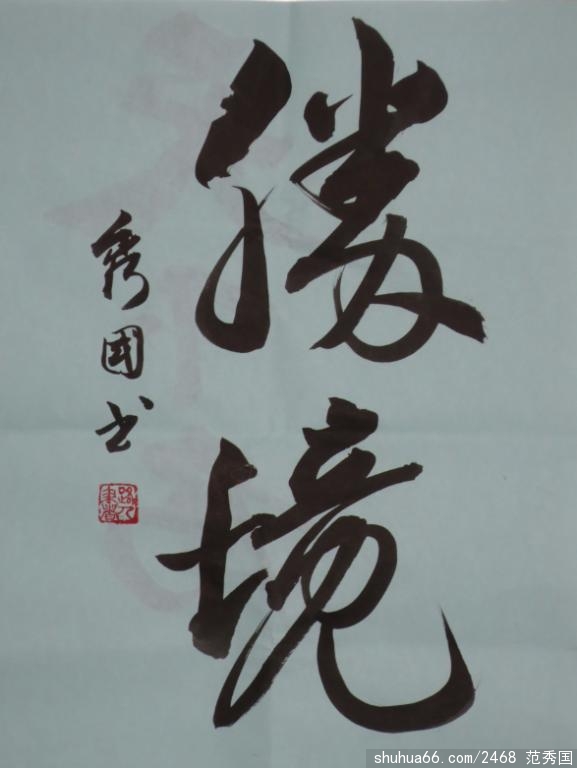 勝境
秀國书
shuhua66.com/2468 范秀国